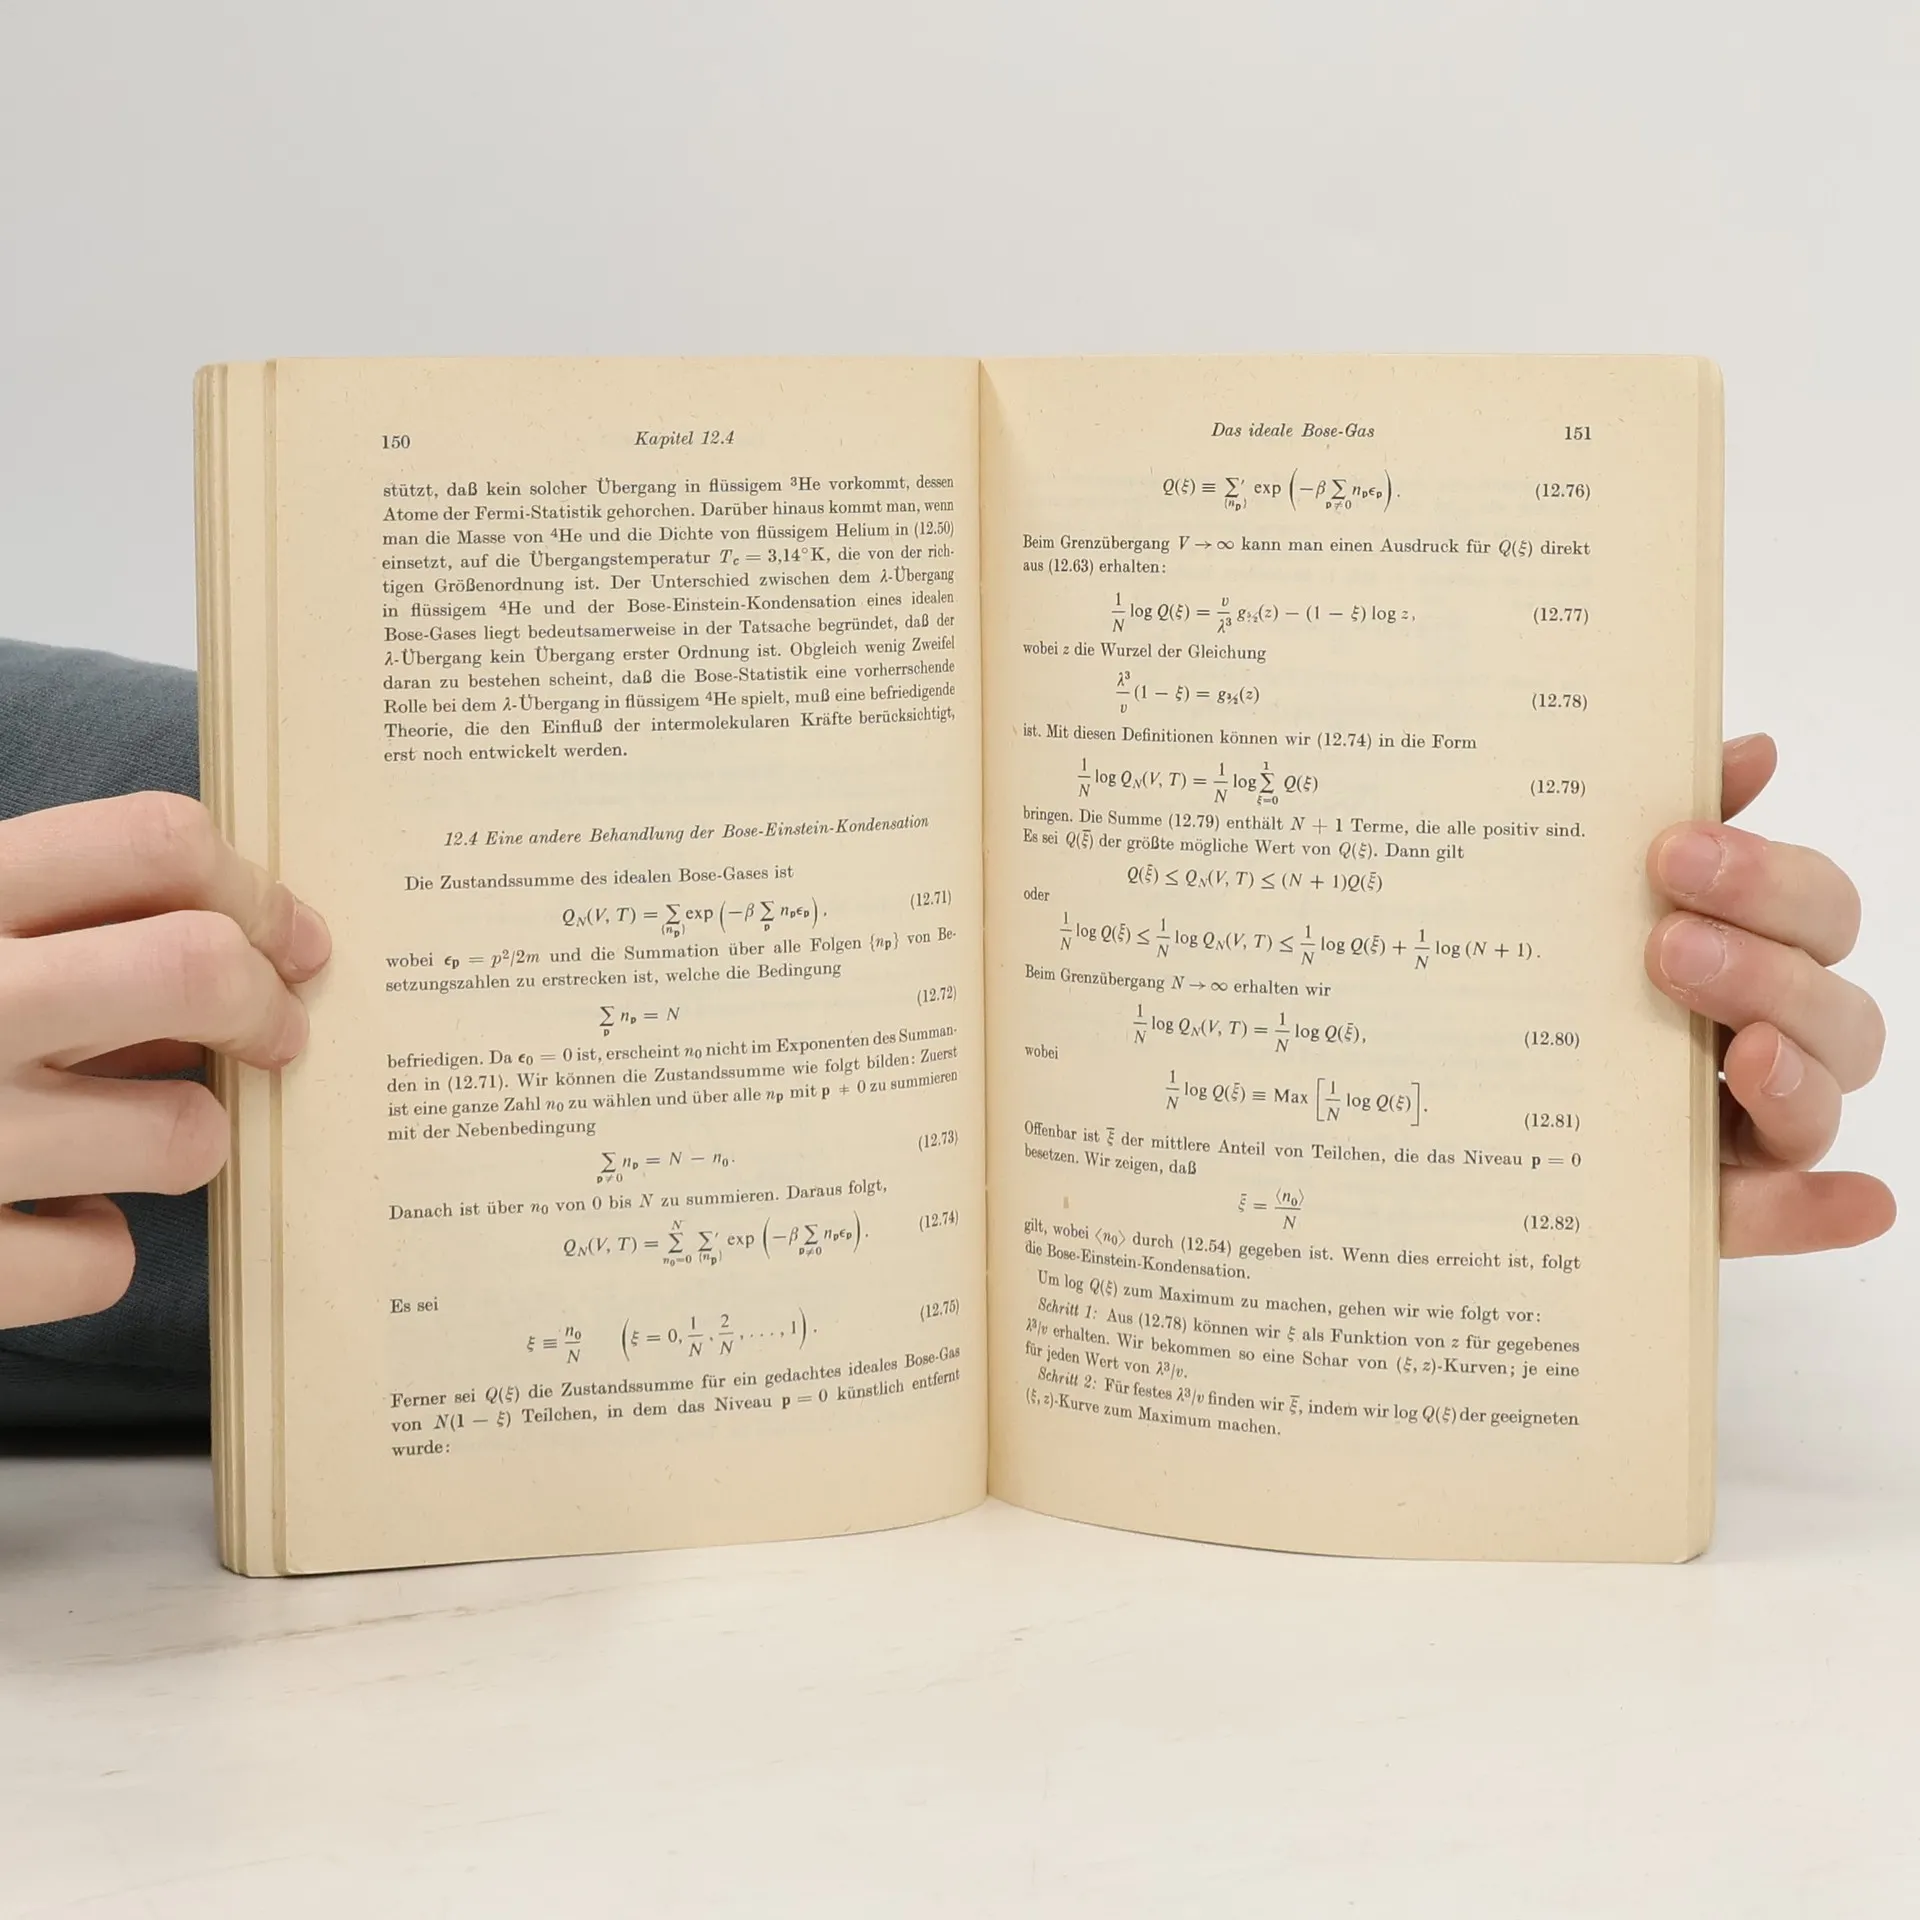 150 Kapitel 12.4
stützt, daß kein solcher Übergang in flüssigem ³He vorkommt, dessen
Atome der Fermi-Statistik gehorchen. Darüber hinaus kommt man, wenn
man die Masse von ⁴He und die Dichte von flüssigem Helium in (12.50)
einsetzt, auf die Übergangstemperatur T_c = 3,14°K, die von der rich-
tigen Größenordnung ist. Der Unterschied zwischen dem λ-Übergang
in flüssigem ⁴He und der Bose-Einstein-Kondensation eines idealen
Bose-Gases liegt bedeutsamerweise in der Tatsache begründet, daß der
λ-Übergang kein Übergang erster Ordnung ist. Obgleich wenig Zweifel
daran zu bestehen scheint, daß die Bose-Statistik eine vorherrschende
Rolle bei dem λ-Übergang in flüssigem ⁴He spielt, muß eine befriedigende
Theorie, die den Einfluß der intermolekularen Kräfte berücksichtigt,
erst noch entwickelt werden.
12.4 Eine andere Behandlung der Bose-Einstein-Kondensation
Die Zustandssumme des idealen Bose-Gases ist
Q_N(V, T) = ∑_{n_p} exp (−β ∑_p n_p ϵ_p). (12.71)
wobei ϵ_p = p²/2m und die Summation über alle Folgen {n_p} von Be-
setzungszahlen zu erstrecken ist, welche die Bedingung
∑_p n_p = N (12.72)
befriedigen. Da ϵ₀ = 0 ist, erscheint n₀ nicht im Exponenten des Summan-
den in (12.71). Wir können die Zustandssumme wie folgt bilden: Zuerst
ist eine ganze Zahl n₀ zu wählen und über alle n_p mit p ≠ 0 zu summieren
mit der Nebenbedingung
∑_{p≠0} n_p = N − n₀. (12.73)
Danach ist über n₀ von 0 bis N zu summieren. Daraus folgt,
Q_N(V, T) = ∑_{n₀=0}^{N} ∑′_{n_p} exp (−β ∑_{p≠0} n_p ϵ_p). (12.74)
Es sei
ξ ≡ n₀/N (ξ = 0, 1/N, 2/N, . . . , 1). (12.75)
Ferner sei Q(ξ) die Zustandssumme für ein gedachtes ideales Bose-Gas
von N(1 − ξ) Teilchen, in dem das Niveau p = 0 künstlich entfernt
wurde:
Das ideale Bose-Gas 151
Q(ξ) ≡ ∑′_{n_p} exp (−β ∑_{p≠0} n_p ϵ_p). (12.76)
Beim Grenzübergang V → ∞ kann man einen Ausdruck für Q(ξ) direkt
aus (12.63) erhalten:
1/N log Q(ξ) = v/λ³ g_{5/2}(z) − (1 − ξ) log z, (12.77)
wobei z die Wurzel der Gleichung
λ³/v (1 − ξ) = g_{3/2}(z) (12.78)
ist. Mit diesen Definitionen können wir (12.74) in die Form
1/N log Q_N(V, T) = 1/N log ∑_{ξ=0}^{1} Q(ξ) (12.79)
bringen. Die Summe (12.79) enthält N + 1 Terme, die alle positiv sind.
Es sei Q(ξ̄) der größte mögliche Wert von Q(ξ). Dann gilt
Q(ξ̄) ≤ Q_N(V, T) ≤ (N + 1)Q(ξ̄)
oder
1/N log Q(ξ̄) ≤ 1/N log Q_N(V, T) ≤ 1/N log Q(ξ̄) + 1/N log (N + 1).
Beim Grenzübergang N → ∞ erhalten wir
1/N log Q_N(V, T) = 1/N log Q(ξ̄), (12.80)
wobei
1/N log Q(ξ̄) ≡ Max [1/N log Q(ξ)]. (12.81)
Offenbar ist ξ̄ der mittlere Anteil von Teilchen, die das Niveau p = 0
besetzen. Wir zeigen, daß
ξ̄ = ⟨n₀⟩/N (12.82)
gilt, wobei ⟨n₀⟩ durch (12.54) gegeben ist. Wenn dies erreicht ist, folgt
die Bose-Einstein-Kondensation.
Um log Q(ξ) zum Maximum zu machen, gehen wir wie folgt vor:
Schritt 1: Aus (12.78) können wir ξ als Funktion von z für gegebenes
λ³/v erhalten. Wir bekommen so eine Schar von (ξ, z)-Kurven; je eine
für jeden Wert von λ³/v.
Schritt 2: Für festes λ³/v finden wir ξ̄, indem wir log Q(ξ) der geeigneten
(ξ, z)-Kurve zum Maximum machen.